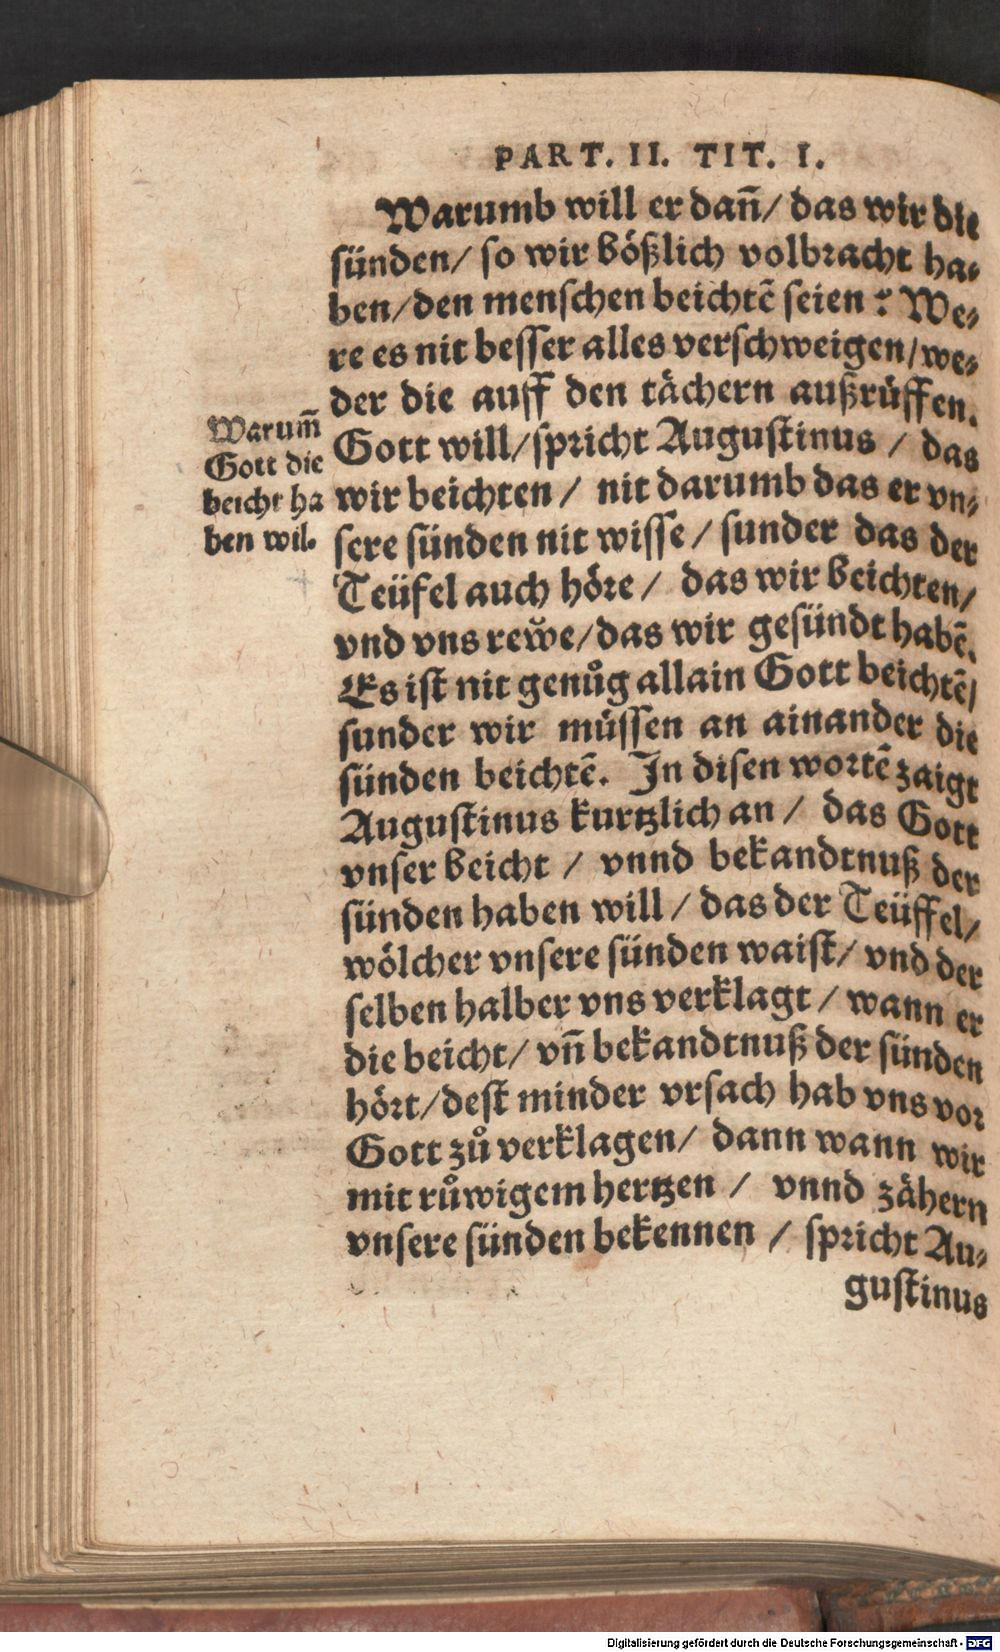 PART. II. TIT. I.
Warumb will er dañ/ das wir die
sünden/ so wir bößlich volbracht ha⸗
ben/den menschen beichtẽ seien? We⸗
re es nit besser alles verschweigen/we⸗
der die auff den tächern außrůffen.
Gott will/spricht Augustinus / das
wir beichten / nit darumb das er vn⸗
sere sünden nit wisse / sunder das der
Teüfel auch höre / das wir beichten/
vnd vns reẘe/das wir gesündt habẽ.
Es ist nit genůg allain Gott beichtẽ/
sunder wir müssen an ainander die
sünden beichtẽ. In disen wortẽ zaigt
Augustinus kurtzlich an / das Gott
vnser beicht / vnnd bekandtnuß der
sünden haben will / das der Teüffel/
wölcher vnsere sünden waist/ vnd der
selben halber vns verklagt / wann er
die beicht/ vñ bekandtnuß der sünden
hört/dest minder vrsach hab vns vor
Gott zů verklagen/ dann wann wir
mit růwigem hertzen / vnnd zähern
vnsere sünden bekennen / spricht Au⸗
gustinus
Warum̃
Gott die
beicht ha
ben wil.
Digitalisierung gefördert durch die Deutsche Forschungsgemeinschaft - DFG